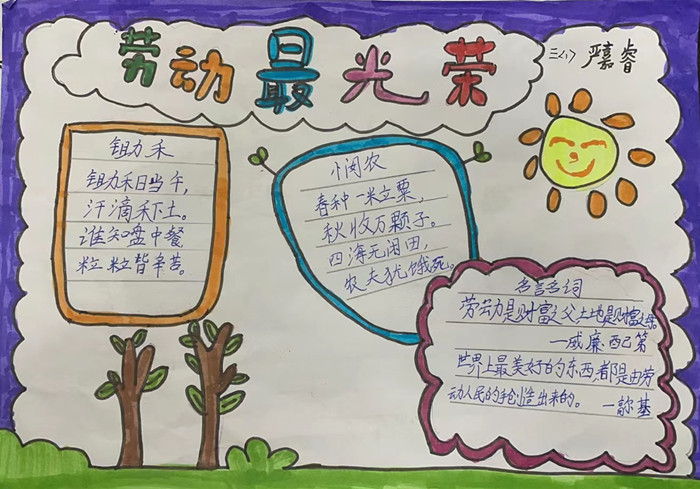 劳动最光荣
三(1) 严嘉睿
锄禾
锄禾日当午,
汗滴禾下土。
谁知盘中餐
粒粒皆辛苦。
悯农
春种一米立粟,
秋收万颗子。
四海无闲田,
农夫犹饿死。
名言名词
劳动是财富父,土地是财富母。
—威廉 配第
世界上最美好的东西,都是由劳
动人民的手创造出来的。